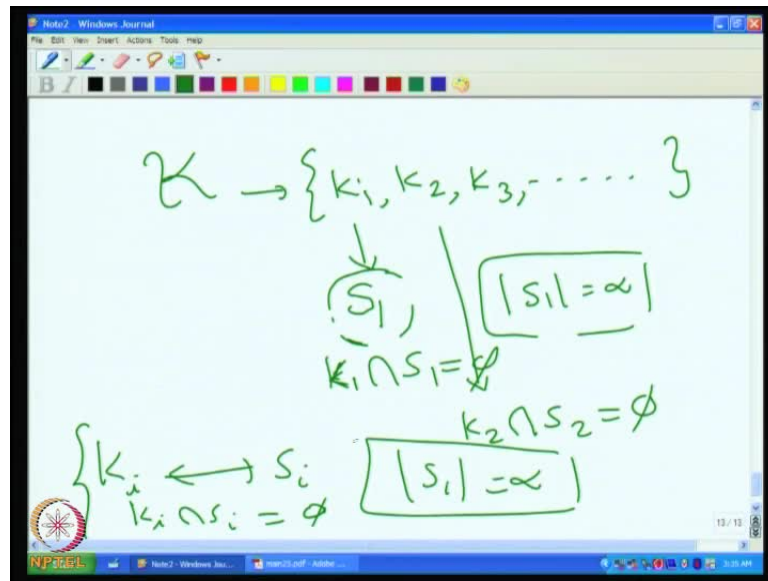 Note2 - Windows Journal
File Edit View Insert Actions Tools Help
B I
K → {K₁, K₂, K₃, ----- }
S₁, |S₁| = α
K₁ ∩ S₁ = φ
K₂ ∩ S₂ = φ
{ Kᵢ ↔ Sᵢ |Sᵢ| = α
Kᵢ ∩ Sᵢ = φ
13 / 13
NPTEL Note2 - Windows Jou... main23.pdf - Adobe ... 3:35 AM